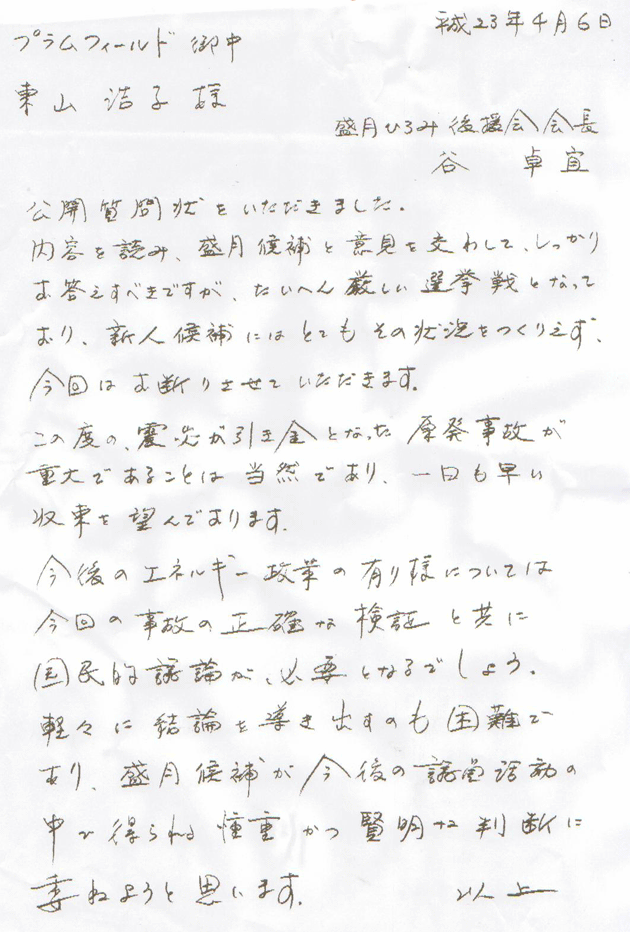 平成23年4月6日
プラムフィールド 御中
東山 浩子 様
盛月ひろみ後援会会長
谷 卓宜
公開質問状をいただきました。
内容を読み、盛月候補と意見を交わして、しっかり
お答えすべきですが、たいへん厳しい選挙戦となって
おり、新人候補にはとてもその状況をつくりえず、
今回はお断りさせていただきます。
この度の、震災が引き金となった原発事故が
重大であることは当然であり、一日も早い
収束を望んでおります。
今後のエネルギー政策の有り様については
今回の事故の正確な検証と共に
国民的議論が、必要となるでしょう。
軽々に結論を導き出すのも困難で
あり、盛月候補が今後の議員活動の
中で得られる慎重かつ賢明な判断に
委ねようと思います。 以上